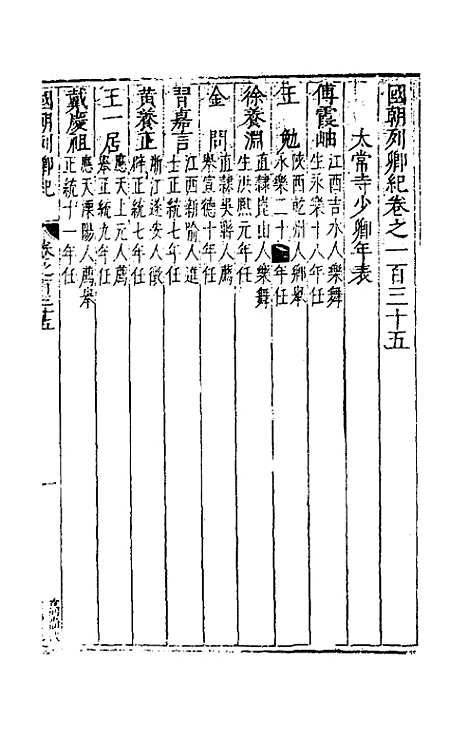 國朝列卿紀卷之一百三十五
太常寺少卿年表
傅霞岫 江西吉水人樂舞
生永樂十八年任
王勉 陝西乾州人鄉舉
永樂二十 年任
徐養淵 直隷崑山人樂舞
生洪熙元年任
金問 直隷吳縣人薦
舉宣德十年任
胥嘉言 江西新喻人進
士正統七年任
黄養正 浙江遂安人徵
辟正統七年任
王一居 應天上元人薦
舉正統九年任
戴慶祖 應天溧陽人薦舉
正統十一年任
國朝列卿紀 卷之一百三十五 一